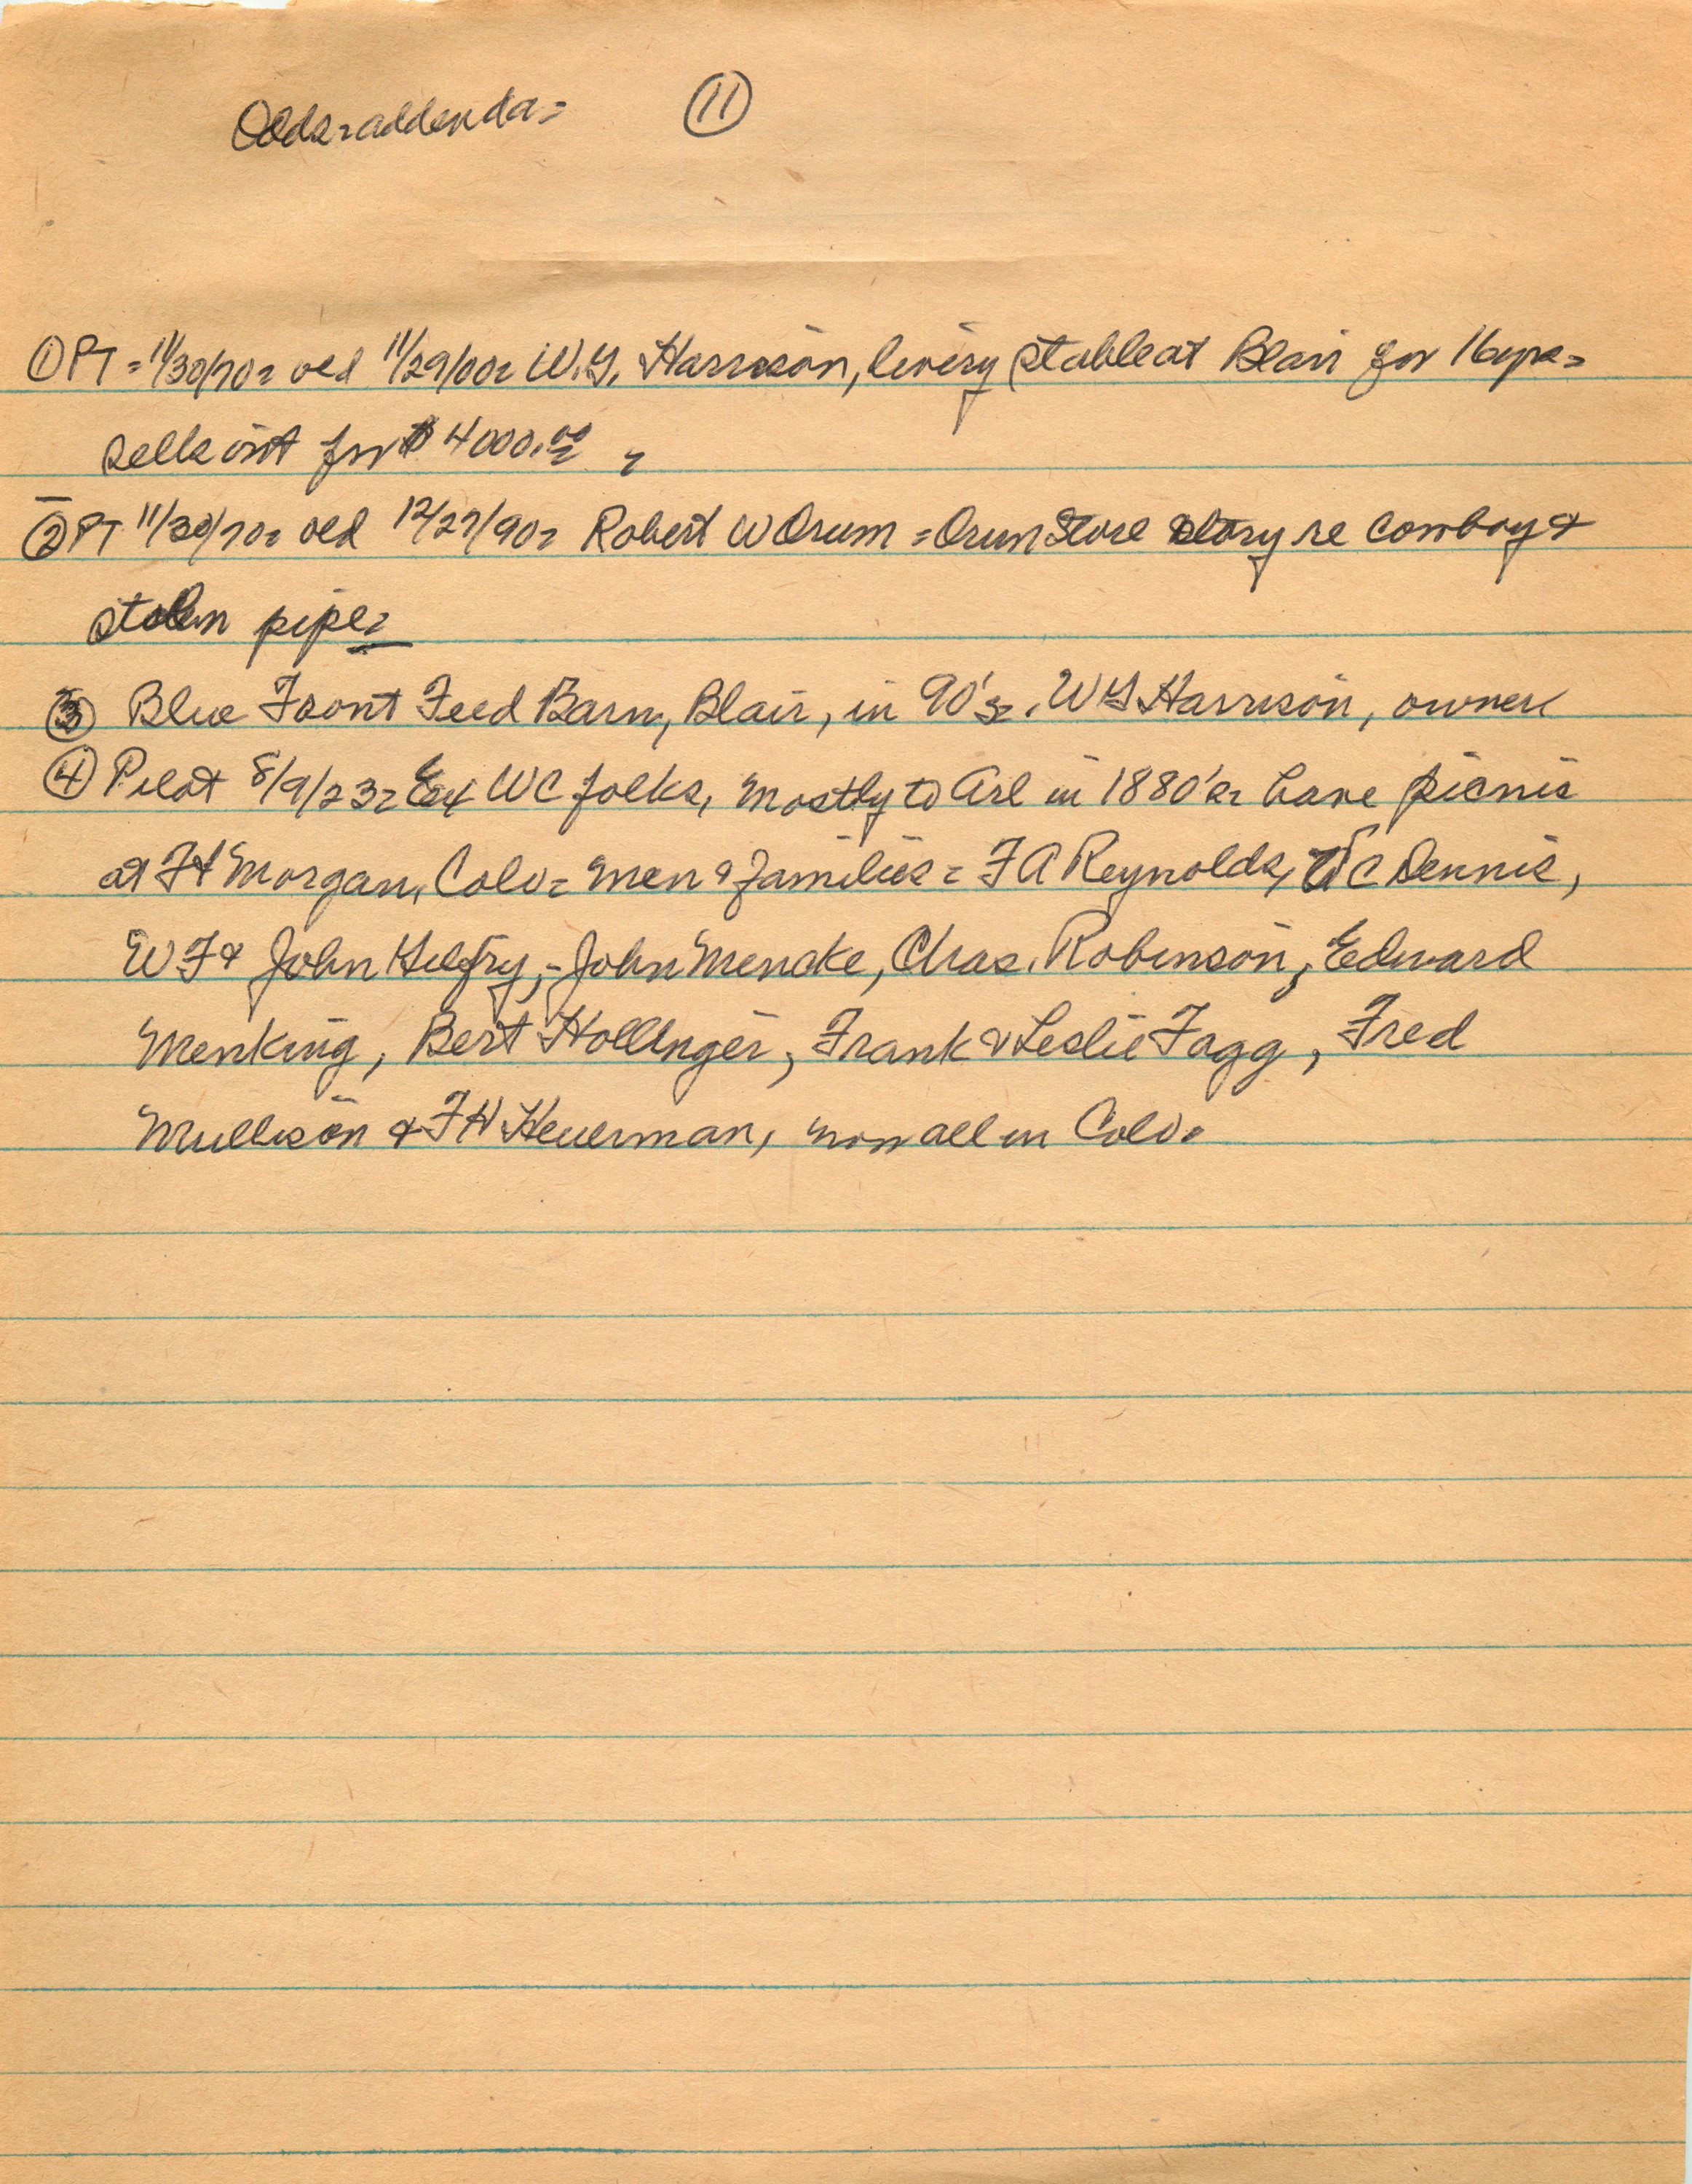 Odds=addenda= 11
① PT = 11/30/70= old 11/29/00= W.G. Harrison, livery stable at Blair for 16 yrs=
sells out for $4000.00 =
② PT 11/30/70= old 12/27/90= Robert W Orum = Orum Store story re cowboy &
stolen pipe=
③ Blue Front Feed Barn, Blair, in 90's=. WG Harrison, owner
④ Pilot 8/9/23= Ex WC folks, mostly to Arl in 1880's= have picnic
at Ft Morgan, Colo= men & families = F A Reynolds, W C Dennis,
W F & John Hilfry, - John Mencke, Chas. Robinson, Edward
Menking, Bert Hollinger, Frank & Leslie Fagg, Fred
Mullison & F H Heuerman, now all in Colo.